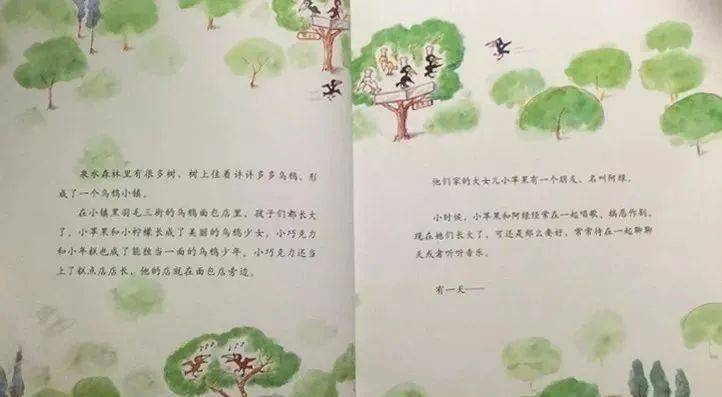 泉水森林里有很多树，树上住着许许多多乌鸦，形
成了一个乌鸦小镇。
在小镇黑羽毛三街的乌鸦面包店里，孩子们都长大
了，小苹果和小柠檬长成了美丽的乌鸦少女，小巧克力
和小年糕也成了能独当一面的乌鸦少年。小巧克力还当
上了糕点店店长，他的店就在面包店旁边。
他们家的大女儿小苹果有一个朋友，名叫阿绿。
小时候，小苹果和阿绿经常在一起唱歌、搞恶作剧。
现在她们长大了，可还是那么要好，常常待在一起聊聊
天或者听听音乐。
有一天——